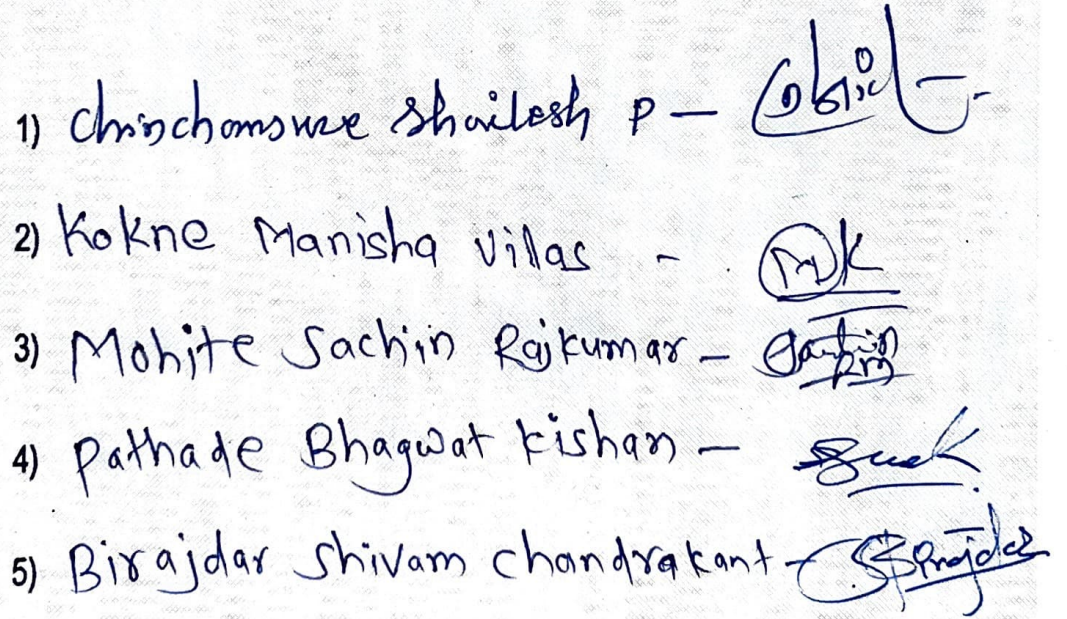 1) Chinchansure Shailesh P -
2) Kokne Manisha Vilas - MK
3) Mohite Sachin Rajkumar - Sachin RM
4) Pathade Bhagwat Kishan -
5) Birajdar Shivam Chandrakant - SBirajdar